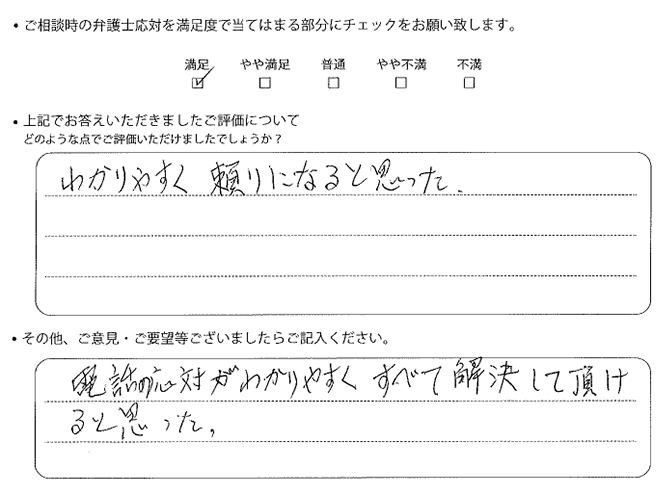 ・ご相談時の弁護士応対を満足度で当てはまる部分にチェックをお願い致します。
満足 やや満足 普通 やや不満 不満
・上記でお答えいただきましたご評価について
どのような点でご評価いただけましたでしょうか？
わかりやすく 頼りになると思った.
・その他、ご意見・ご要望等ございましたらご記入ください。
電話の応対がわかりやすく すべて解決して頂け
ると思った。